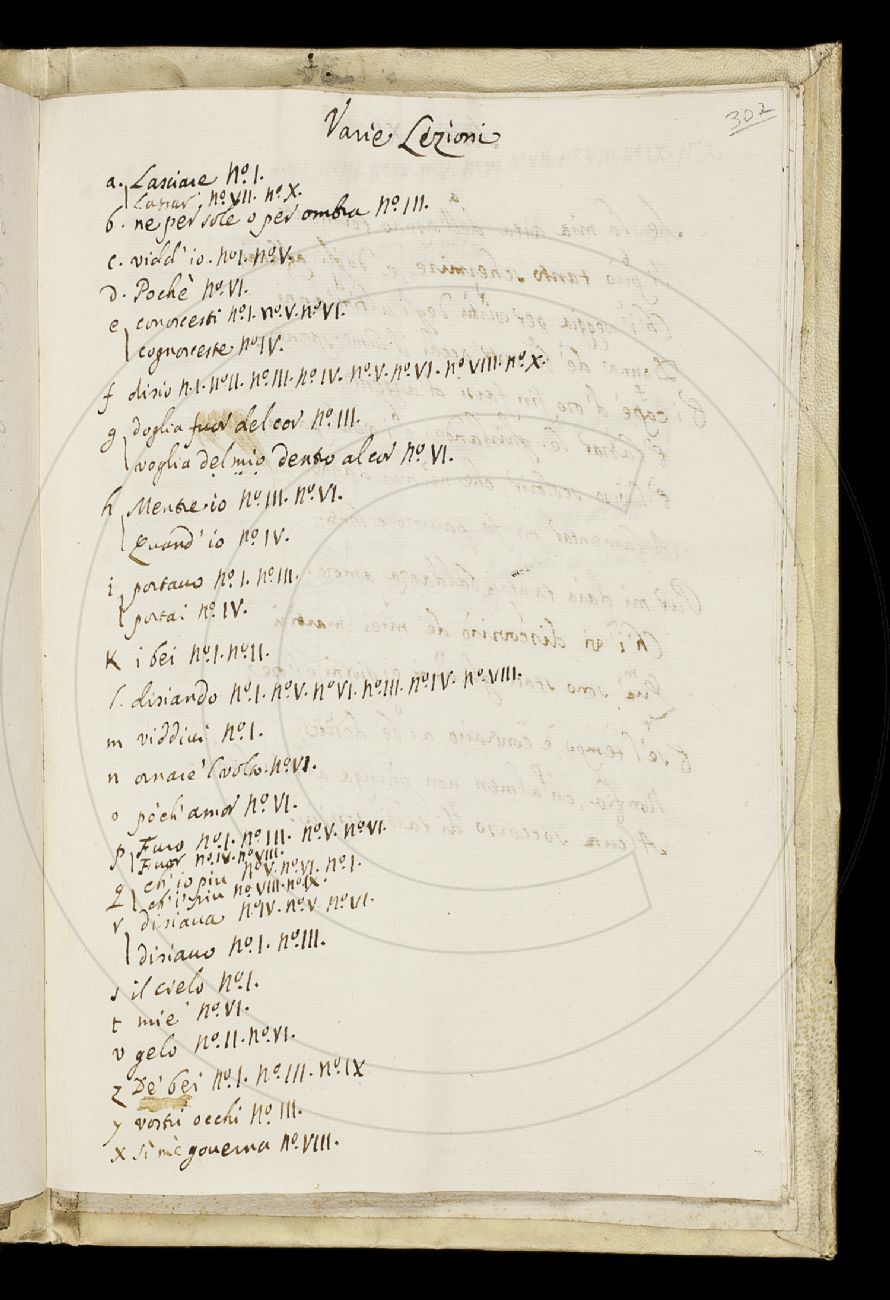 302
Varie Lezioni
a. Lasciare nº. I.
Lassar nº. VII. nº. X.
b. ne per sole o per ombra nº. III.
c. vidd'io. nº. I. nº. V.
D. Pochè nº. VI.
e conoscesti nº. I. nº. V. nº. VI.
cognosceste nº. IV.
f disio n. I. nº. II. nº. III. nº. IV. nº. V. nº. VI. nº. VIII. nº. X.
g doglia fuor del cor nº. III.
voglia del mio dentro al cor nº. VI.
h Mentre io nº. III. nº. VI.
Quand'io nº. IV.
i portavo nº. I. nº. III.
portai nº. IV.
K i bei nº. I. nº. II.
l. disiando nº. I. nº. V. nº. VI. nº. III. nº. IV. nº. VIII.
m viddivi nº. I.
n ornare'l volto. nº. VI.
o pò ch'amor nº. VI.
p Furo nº. I. nº. III. nº. V. nº. VI.
Fuor nº. IV. nº. VIII.
q ch'io piu nº. V. nº. VI. nº. I.
ch'i' piu nº. VIII. nº. IX.
r disiava nº. IV. nº. V. nº. VI.
disiavo nº. I. nº. III.
s il cielo nº. I.
t mie' nº. VI.
v gelo nº. II. nº. VI.
z De' bei nº. I. nº. III. nº. IX
y vostri occhi nº. III.
x sì me governa nº. VIII.